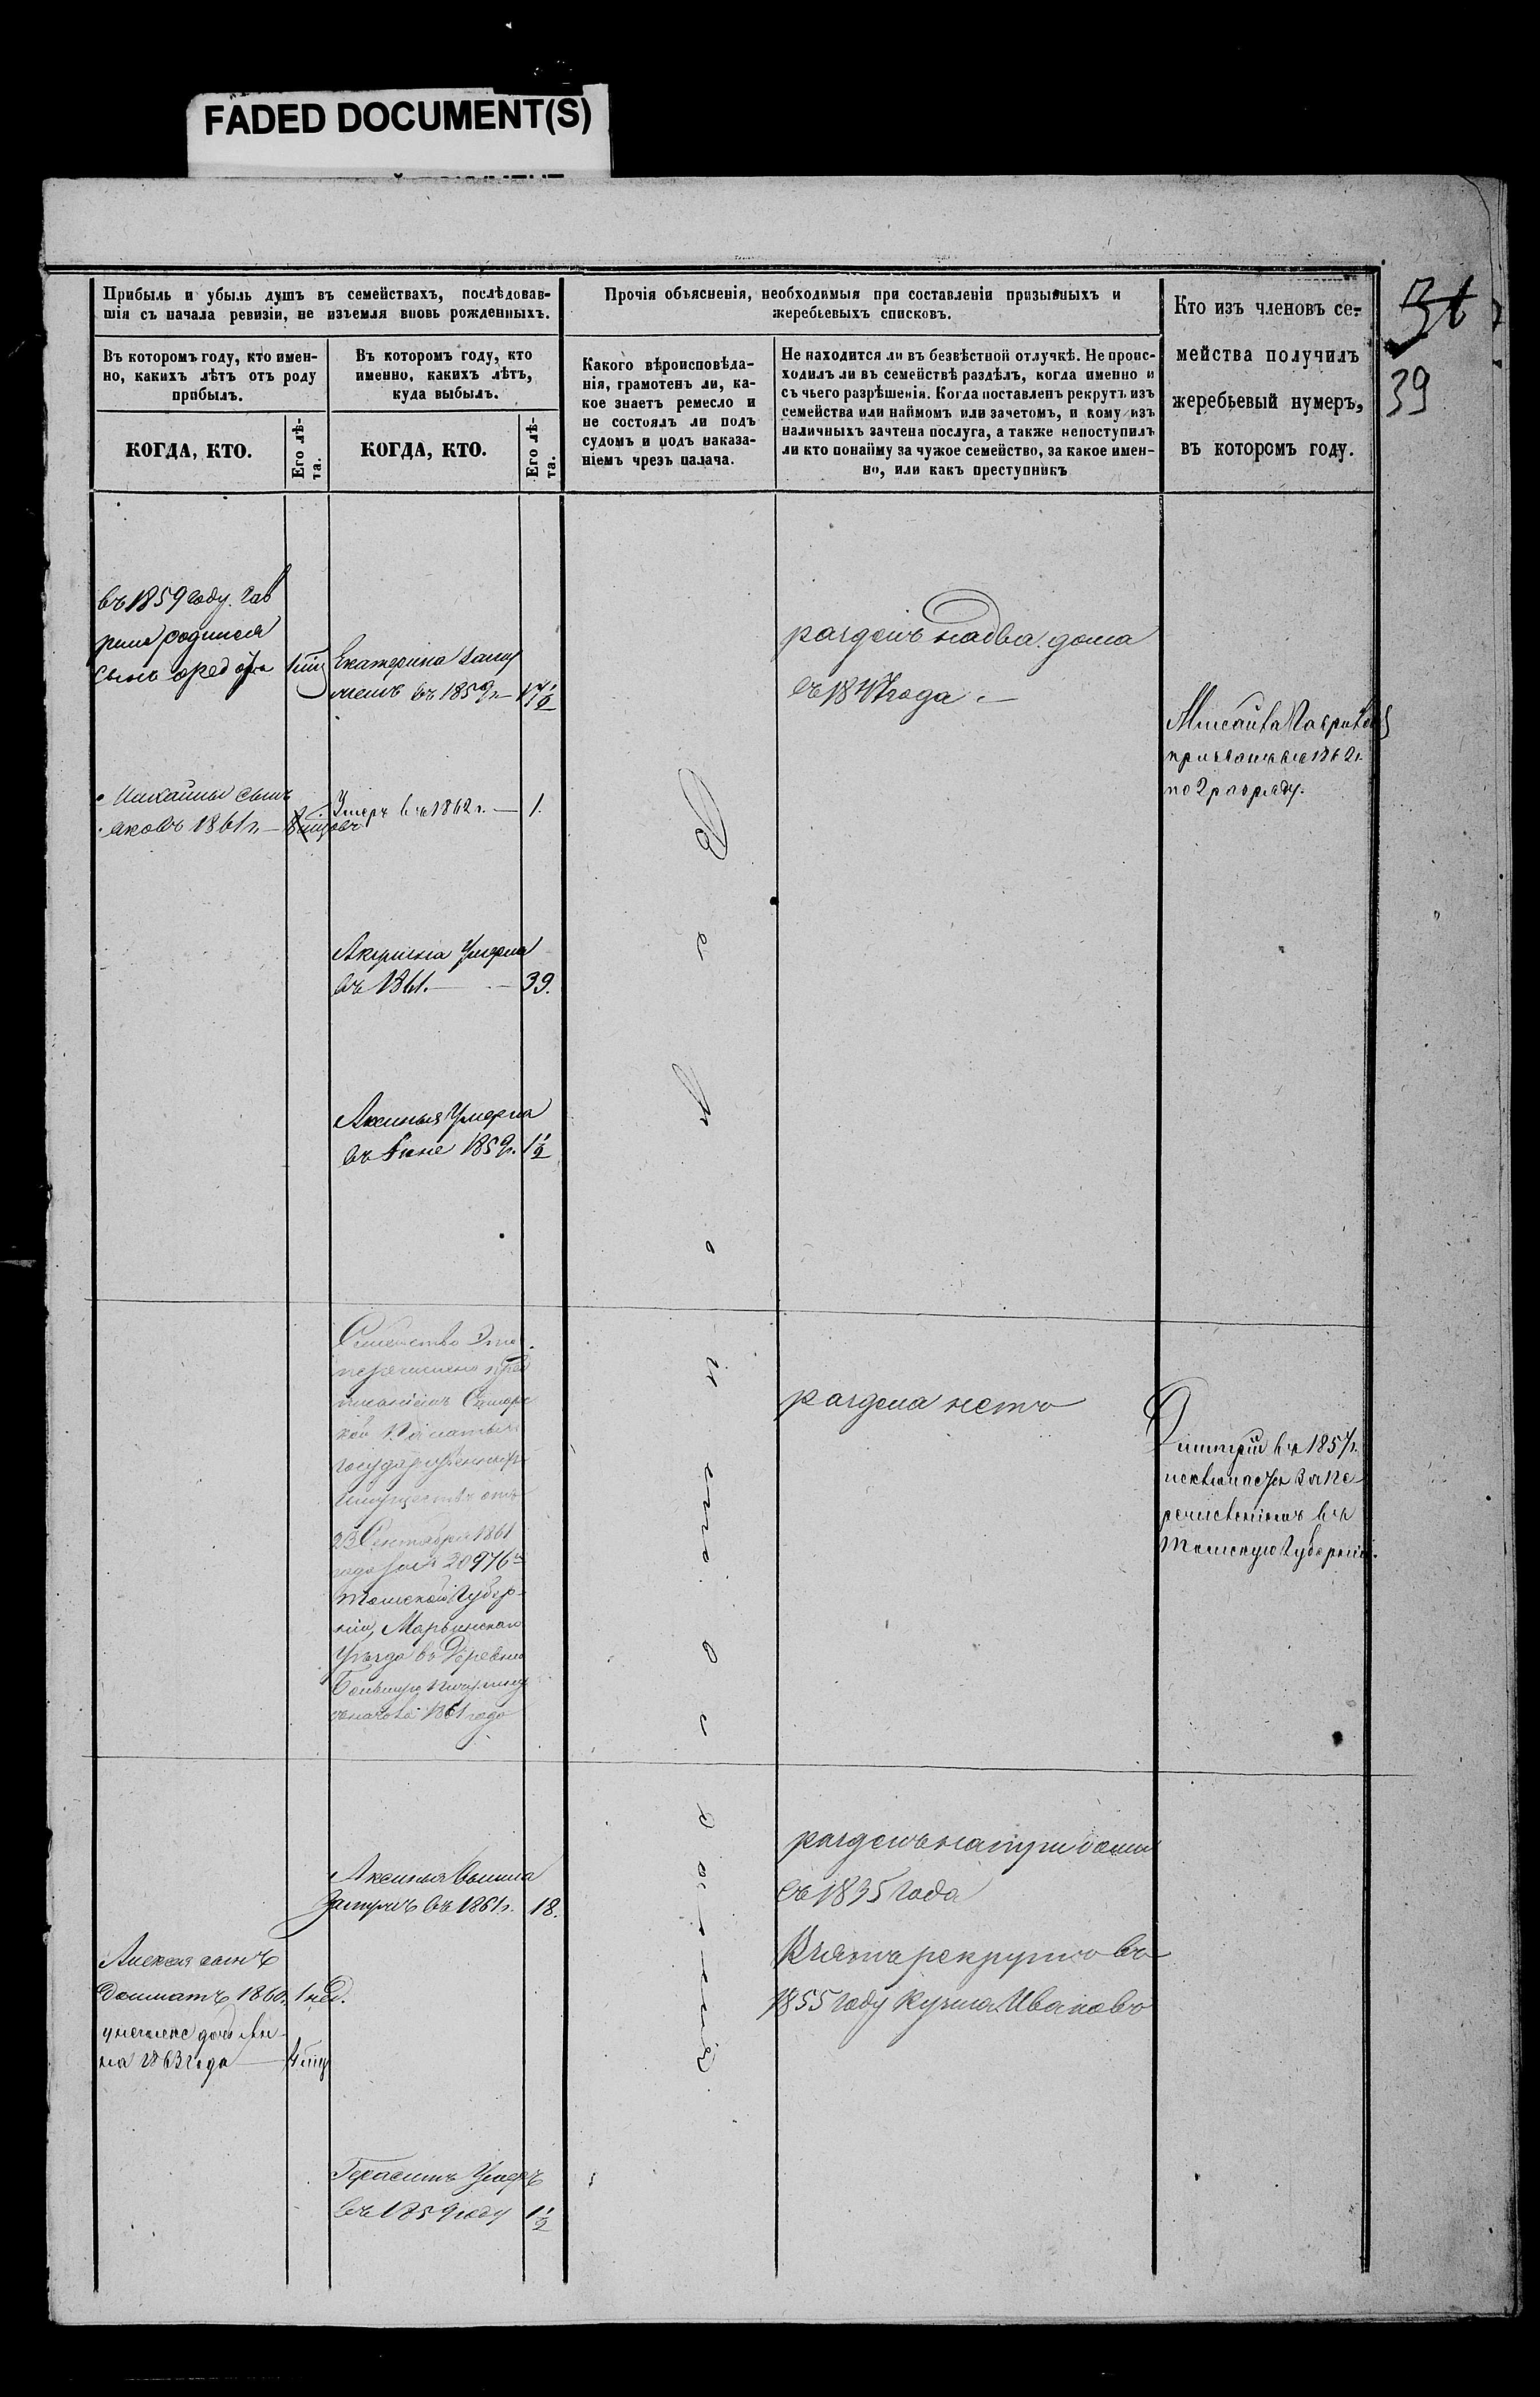 FADED DOCUMENT(S)
Прибыль и убыль душъ въ семействахъ, послѣдовав-
шія съ начала ревизіи, не изъемля вновь рожденныхъ.
Прочія объясненія, необходимыя при составленіи призывныхъ и
жеребьевыхъ списковъ.
Кто изъ членовъ се-
мейства получилъ
жеребьевый нумеръ,
въ которомъ году.
31
39
Въ которомъ году, кто имен-
но, какихъ лѣтъ отъ роду
прибылъ.
Въ которомъ году, кто
именно, какихъ лѣтъ,
куда выбылъ.
Какого вѣроисповѣда-
нія, грамотенъ ли, ка-
кое знаетъ ремесло и
не состоялъ ли подъ
судомъ и подъ наказа-
ніемъ чрезъ палача.
Не находится ли въ безвѣстной отлучкѣ. Не проис-
ходилъ ли въ семействѣ раздѣлъ, когда именно и
съ чьего разрѣшенія. Когда поставленъ рекрутъ изъ
семейства или наймомъ или зачетомъ, и кому изъ
наличныхъ зачтена послуга, а также непоступилъ
ли кто понайму за чужое семейство, за какое имен-
но, или какъ преступникъ
КОГДА, КТО.
Его лѣ-
та.
КОГДА, КТО.
Его лѣ-
та.
въ 1859 году. Гав
рила родился
сынъ
Екатерина заму
жемъ въ 1859г. — 17½
разделъ на два дома
съ 1847 года —
по 2 разряду.
сынъ
Яковъ 1861г. —
Умеръ въ 1862г. — 1.
Акулина Умерла
въ 1861. — 39.
Аксинья Умерла
въ 1859г. 1½
Семейство Это
перечислено пред
писаніемъ
Палаты
государственныхъ
имуществъ отъ
23 Сентября 1861
года за № 20976
Томской Губер-
ніи, Марьинскаго
Уѣзда въ Деревню
Большую
сначала 1861 года
раздела нетъ
Дмитрій въ 1857г.
за пе
речисленіемъ въ
Томскую Губернію.
Аксинья вышла
Замужъ въ 1861г. 18.
разделъ на три дома
съ 1835 года
Взятъ рекрутъ въ
1855 году Кузма Ивановъ
Алексея сынъ
1860. 1 нед.
дочь Ан-
на 1863 года —
Герасимъ Умеръ
въ 1859 году 1½